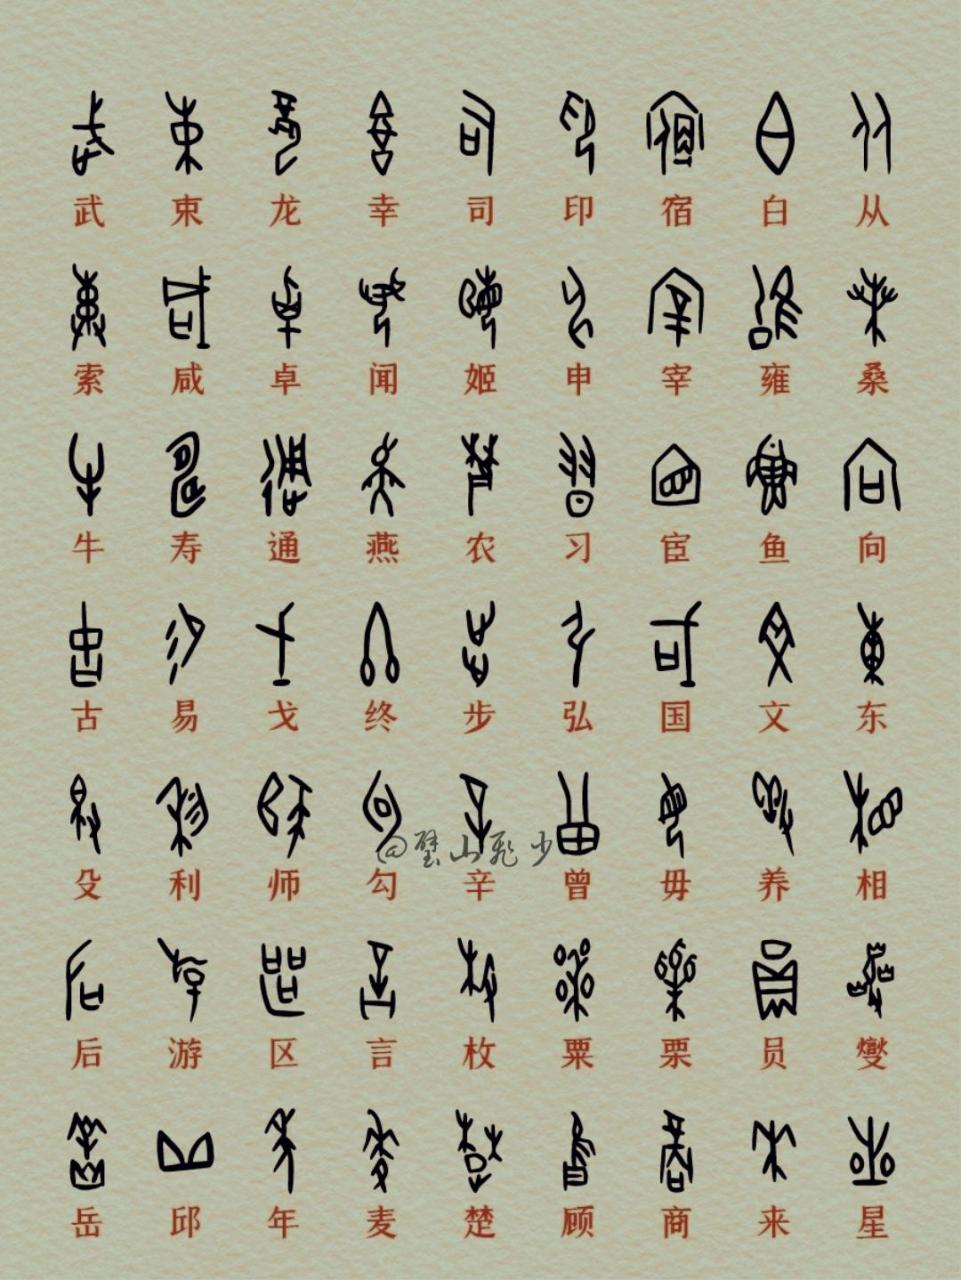 武 束 龙 幸 司 印 宿 白 从
索 咸 卓 闻 姬 申 宰 雍 桑
牛 寿 通 燕 农 习 宦 鱼 向
古 易 戈 终 步 弘 国 文 东
@璧山飛少
殳 利 师 勾 辛 曾 毋 养 相
后 游 区 言 枚 粟 栗 员 燮
岳 邱 年 麦 楚 顾 商 来 星